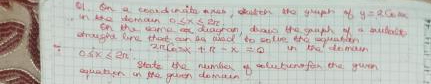 Q1. On a coordinate axes, sketch the graph of y = 2 Cos x
, in the domain 0 ≤ x ≤ 2π.
On the same diagram, draw the graph of a suitable
straight line that can be used to solve the equation
2π Cos x + π - x = 0 in the domain
0 ≤ x ≤ 2π.
State the number of solutions for the given
equation in the given domain